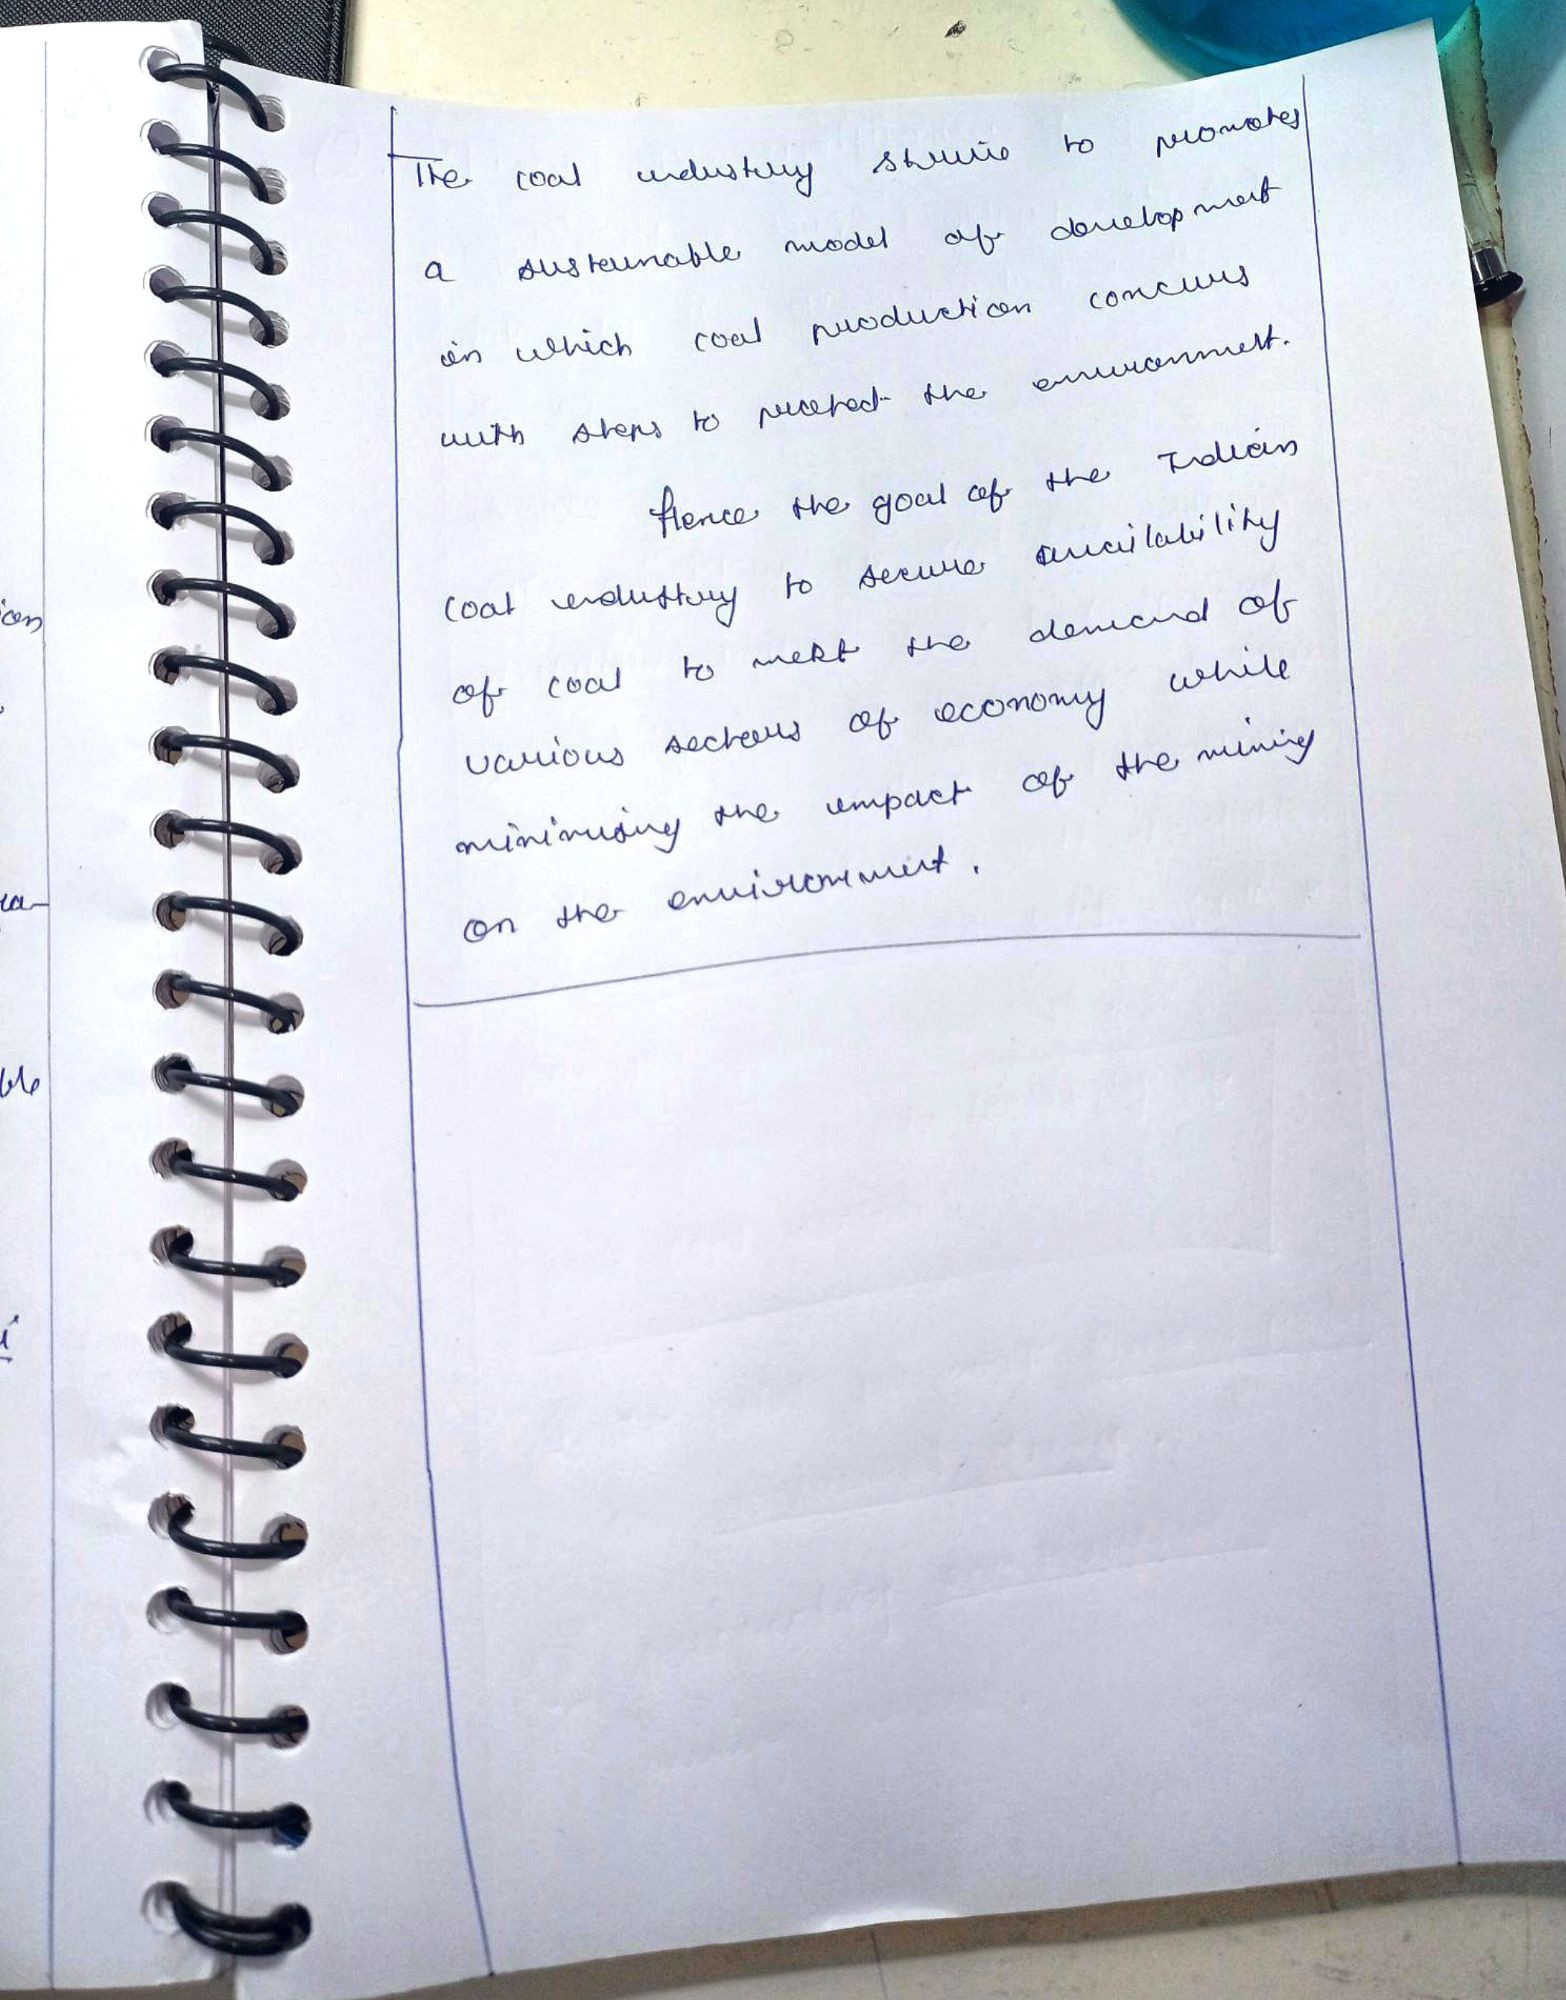 The coal industry strive to promotes
a sustainable model of development
in which coal production concurs
with steps to protect the environment.
Hence the goal of the Indian
coal industry to secure availability
of coal to meet the demand of
various sectors of economy while
minimising the impact of the mining
on the environment.